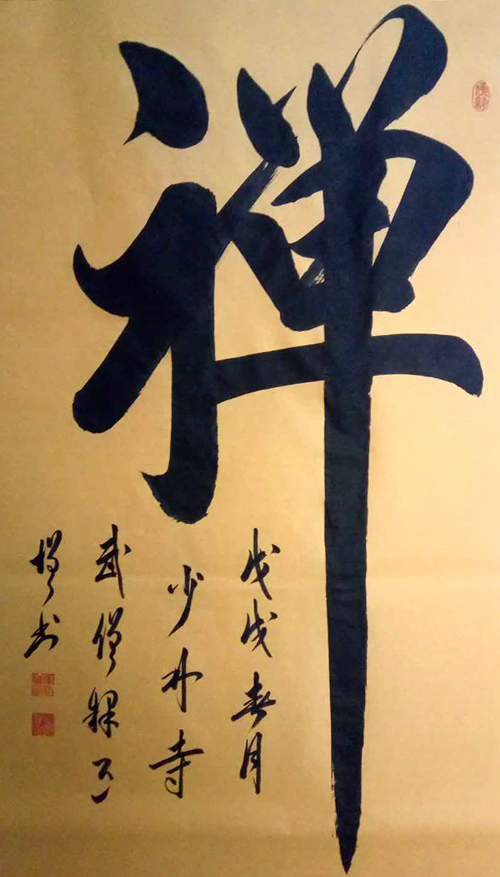 禅
戊戌春月
少林寺
武僧释
书